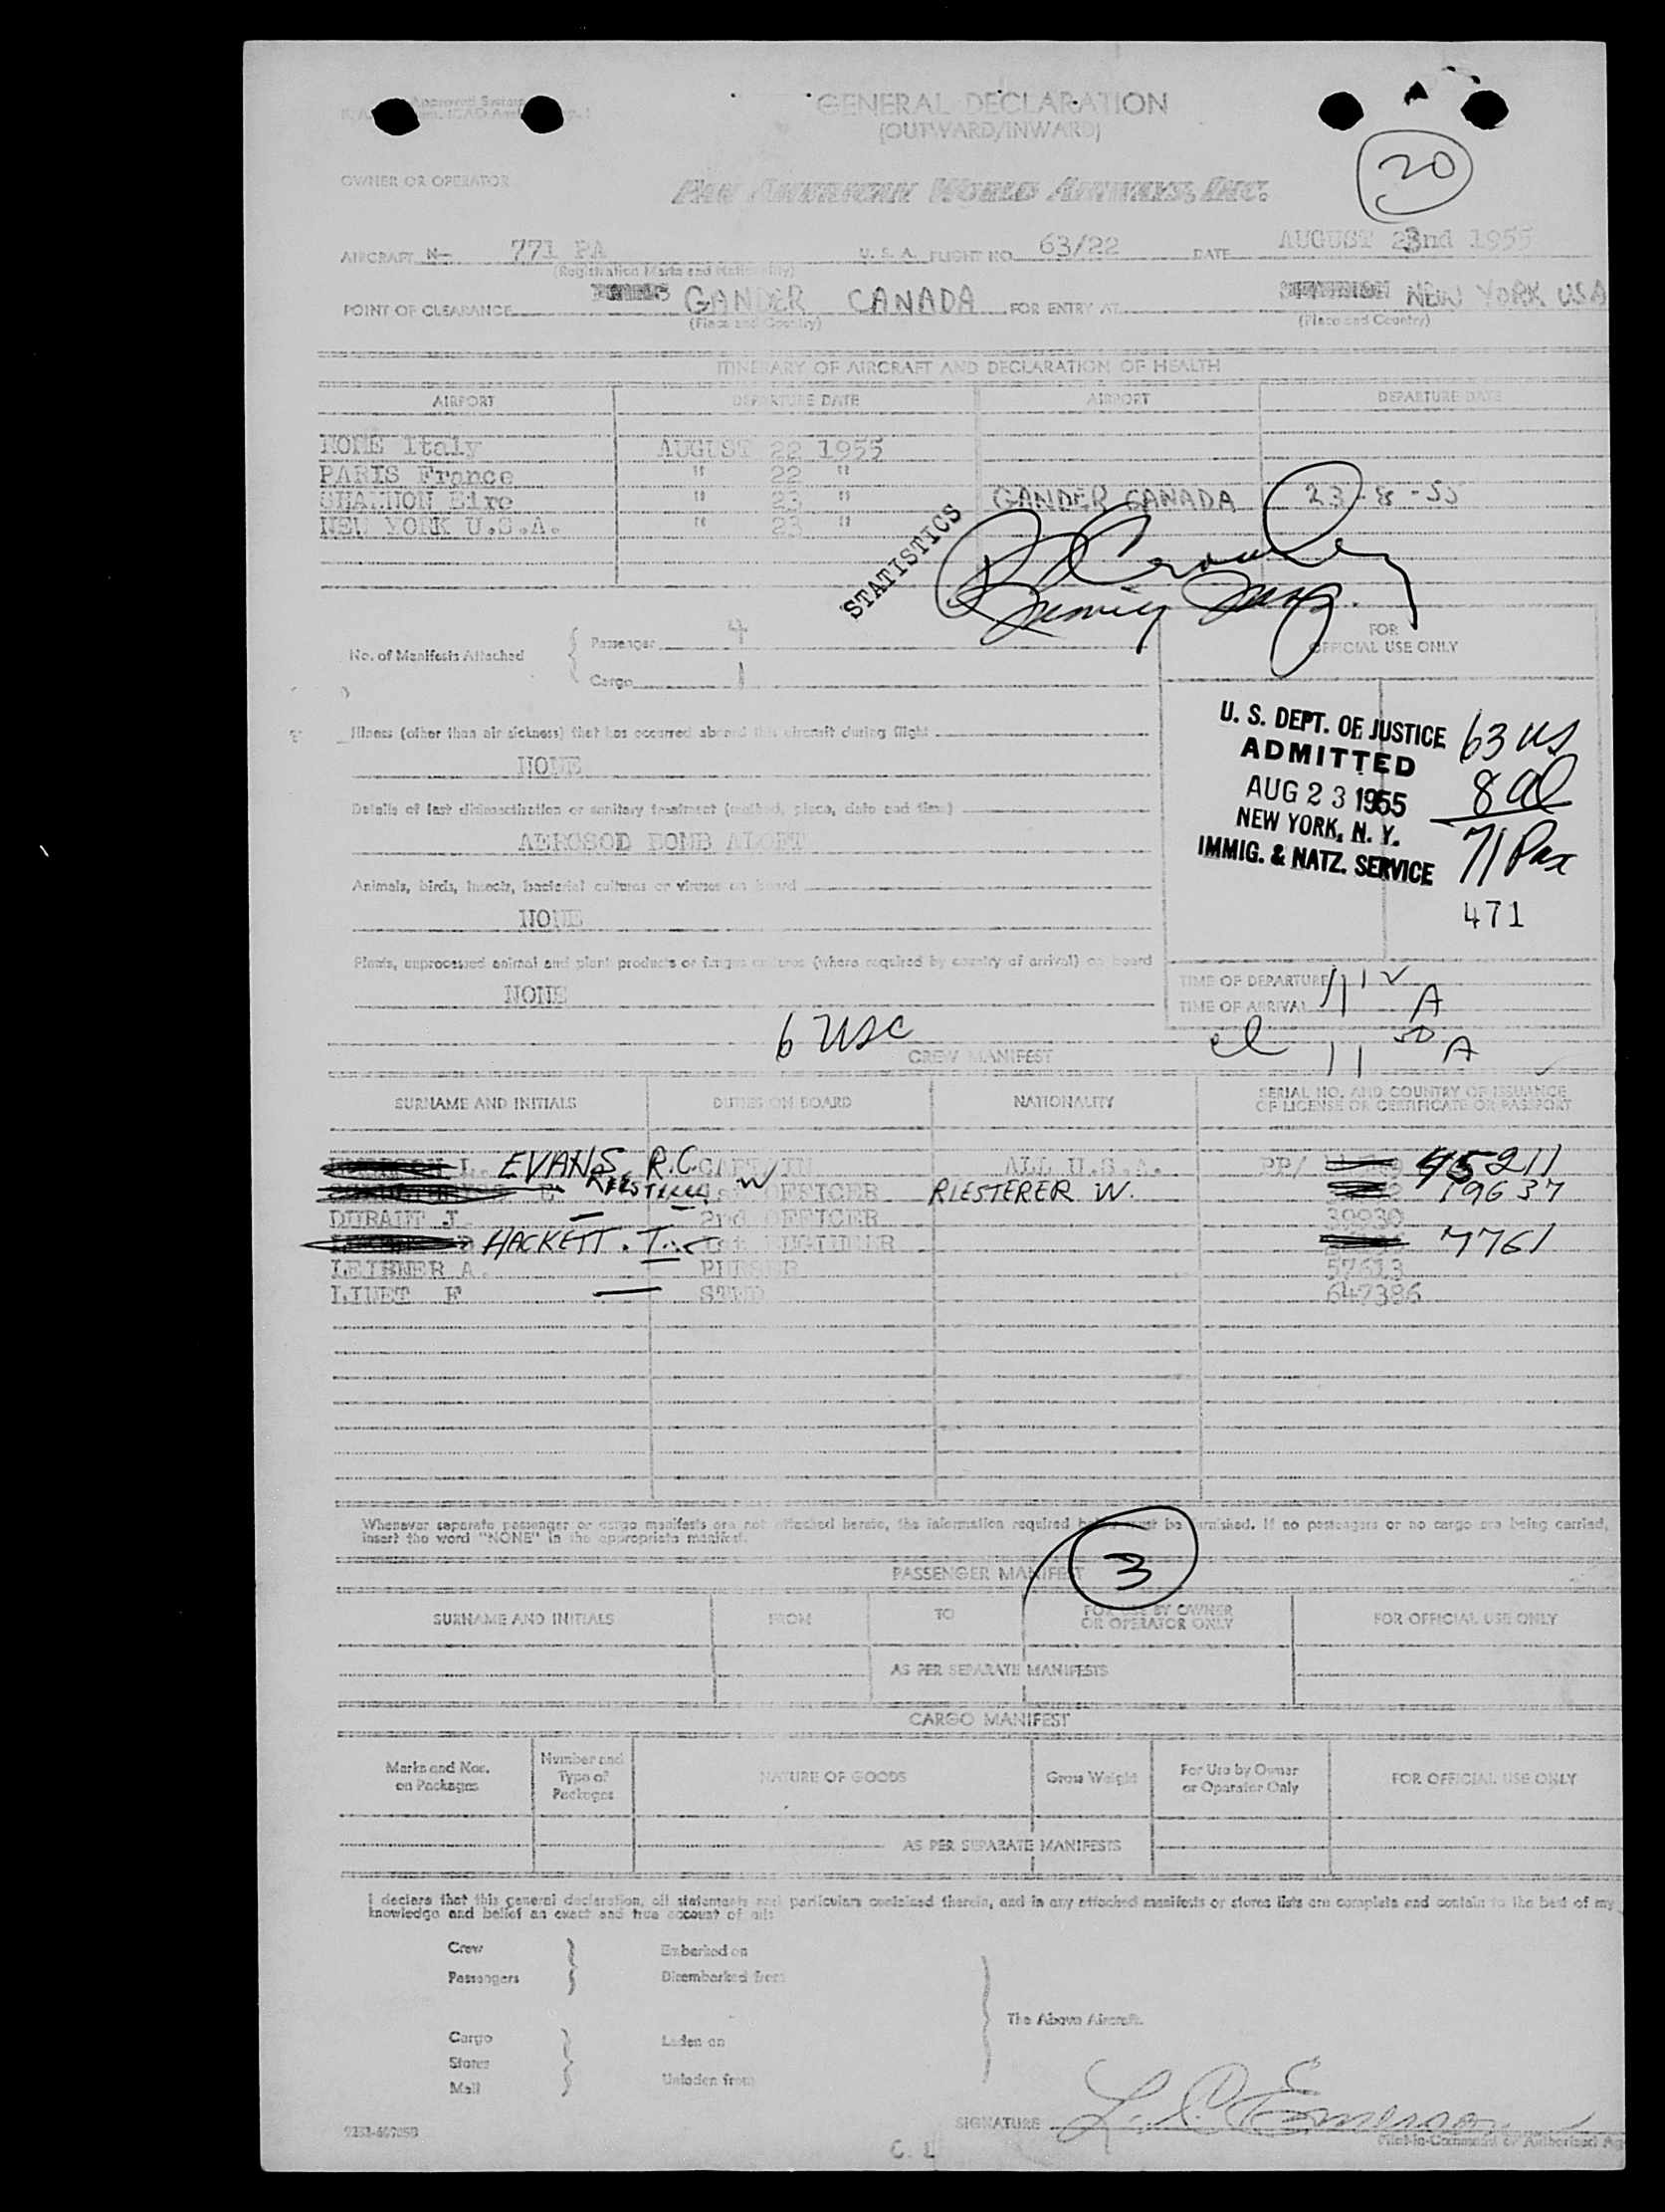 GENERAL DECLARATION
(OUTWARD/INWARD)
20
OWNER OR OPERATOR
PAN AMERICAN WORLD AIRWAYS, INC.
AIRCRAFT N- 771 PA U. S. A. FLIGHT NO. 63/22 DATE AUGUST 23nd 1955
(Registration Marks and Nationality)
POINT OF CLEARANCE GANDER CANADA FOR ENTRY AT NEW YORK USA
(Place and Country) (Place and Country)
ITINERARY OF AIRCRAFT AND DECLARATION OF HEALTH
AIRPORT DEPARTURE DATE AIRPORT DEPARTURE DATE
ROME Italy AUGUST 22 1955
PARIS France " 22 "
SHANNON Eire " 23 " GANDER CANADA 23-8-55
NEW YORK U.S.A. " 23 "
STATISTICS
No. of Manifests Attached Passenger 4
Cargo 1
FOR
OFFICIAL USE ONLY
U. S. DEPT. OF JUSTICE 63 US
ADMITTED
AUG 23 1955 8 al
NEW YORK, N. Y.
IMMIG. & NATZ. SERVICE 71 Pax
471
Illness (other than air sickness) that has occurred aboard this aircraft during flight
NONE
Details of last disinsectization or sanitary treatment (method, place, date and time)
AEROSOD BOMB ALOFT
Animals, birds, insects, bacterial cultures or viruses on board
NONE
Plants, unprocessed animal and plant products or fungus cultures (where required by country of arrival) on board
NONE
TIME OF DEPARTURE 11 12 A
TIME OF ARRIVAL
11 50 A
6 USC
CREW MANIFEST
SURNAME AND INITIALS DUTIES ON BOARD NATIONALITY SERIAL NO. AND COUNTRY OF ISSUANCE
OF LICENSE OR CERTIFICATE OR PASSPORT
EVANS, R.C. CAPTAIN ALL U.S.A. PP/ 45211
RIESTERER W 1st OFFICER RIESTERER W. 19637
DURANT J. 2nd OFFICER 39930
HACKETT. T. 1st ENGINEER 7761
LEIBNER A. PURSER 57613
LINET F STWD 647386
Whenever separate passenger or cargo manifests are not attached hereto, the information required below must be furnished. If no passengers or no cargo are being carried,
insert the word "NONE" in the appropriate manifest.
3
PASSENGER MANIFEST
SURNAME AND INITIALS FROM TO FOR USE BY OWNER
OR OPERATOR ONLY FOR OFFICIAL USE ONLY
AS PER SEPARATE MANIFESTS
CARGO MANIFEST
Marks and Nos.
on Packages Number and
Type of
Packages NATURE OF GOODS Gross Weight For Use by Owner
or Operator Only FOR OFFICIAL USE ONLY
AS PER SEPARATE MANIFESTS
I declare that this general declaration, all statements and particulars contained therein, and in any attached manifests or stores lists are complete and contain to the best of my
knowledge and belief an exact and true account of all:
Crew Embarked on
Passengers Disembarked from
The Above Aircraft.
Cargo Laden on
Stores
Mail Unladen from
SIGNATURE L. C. Emerson
Pilot-in-Command or Authorized Ag